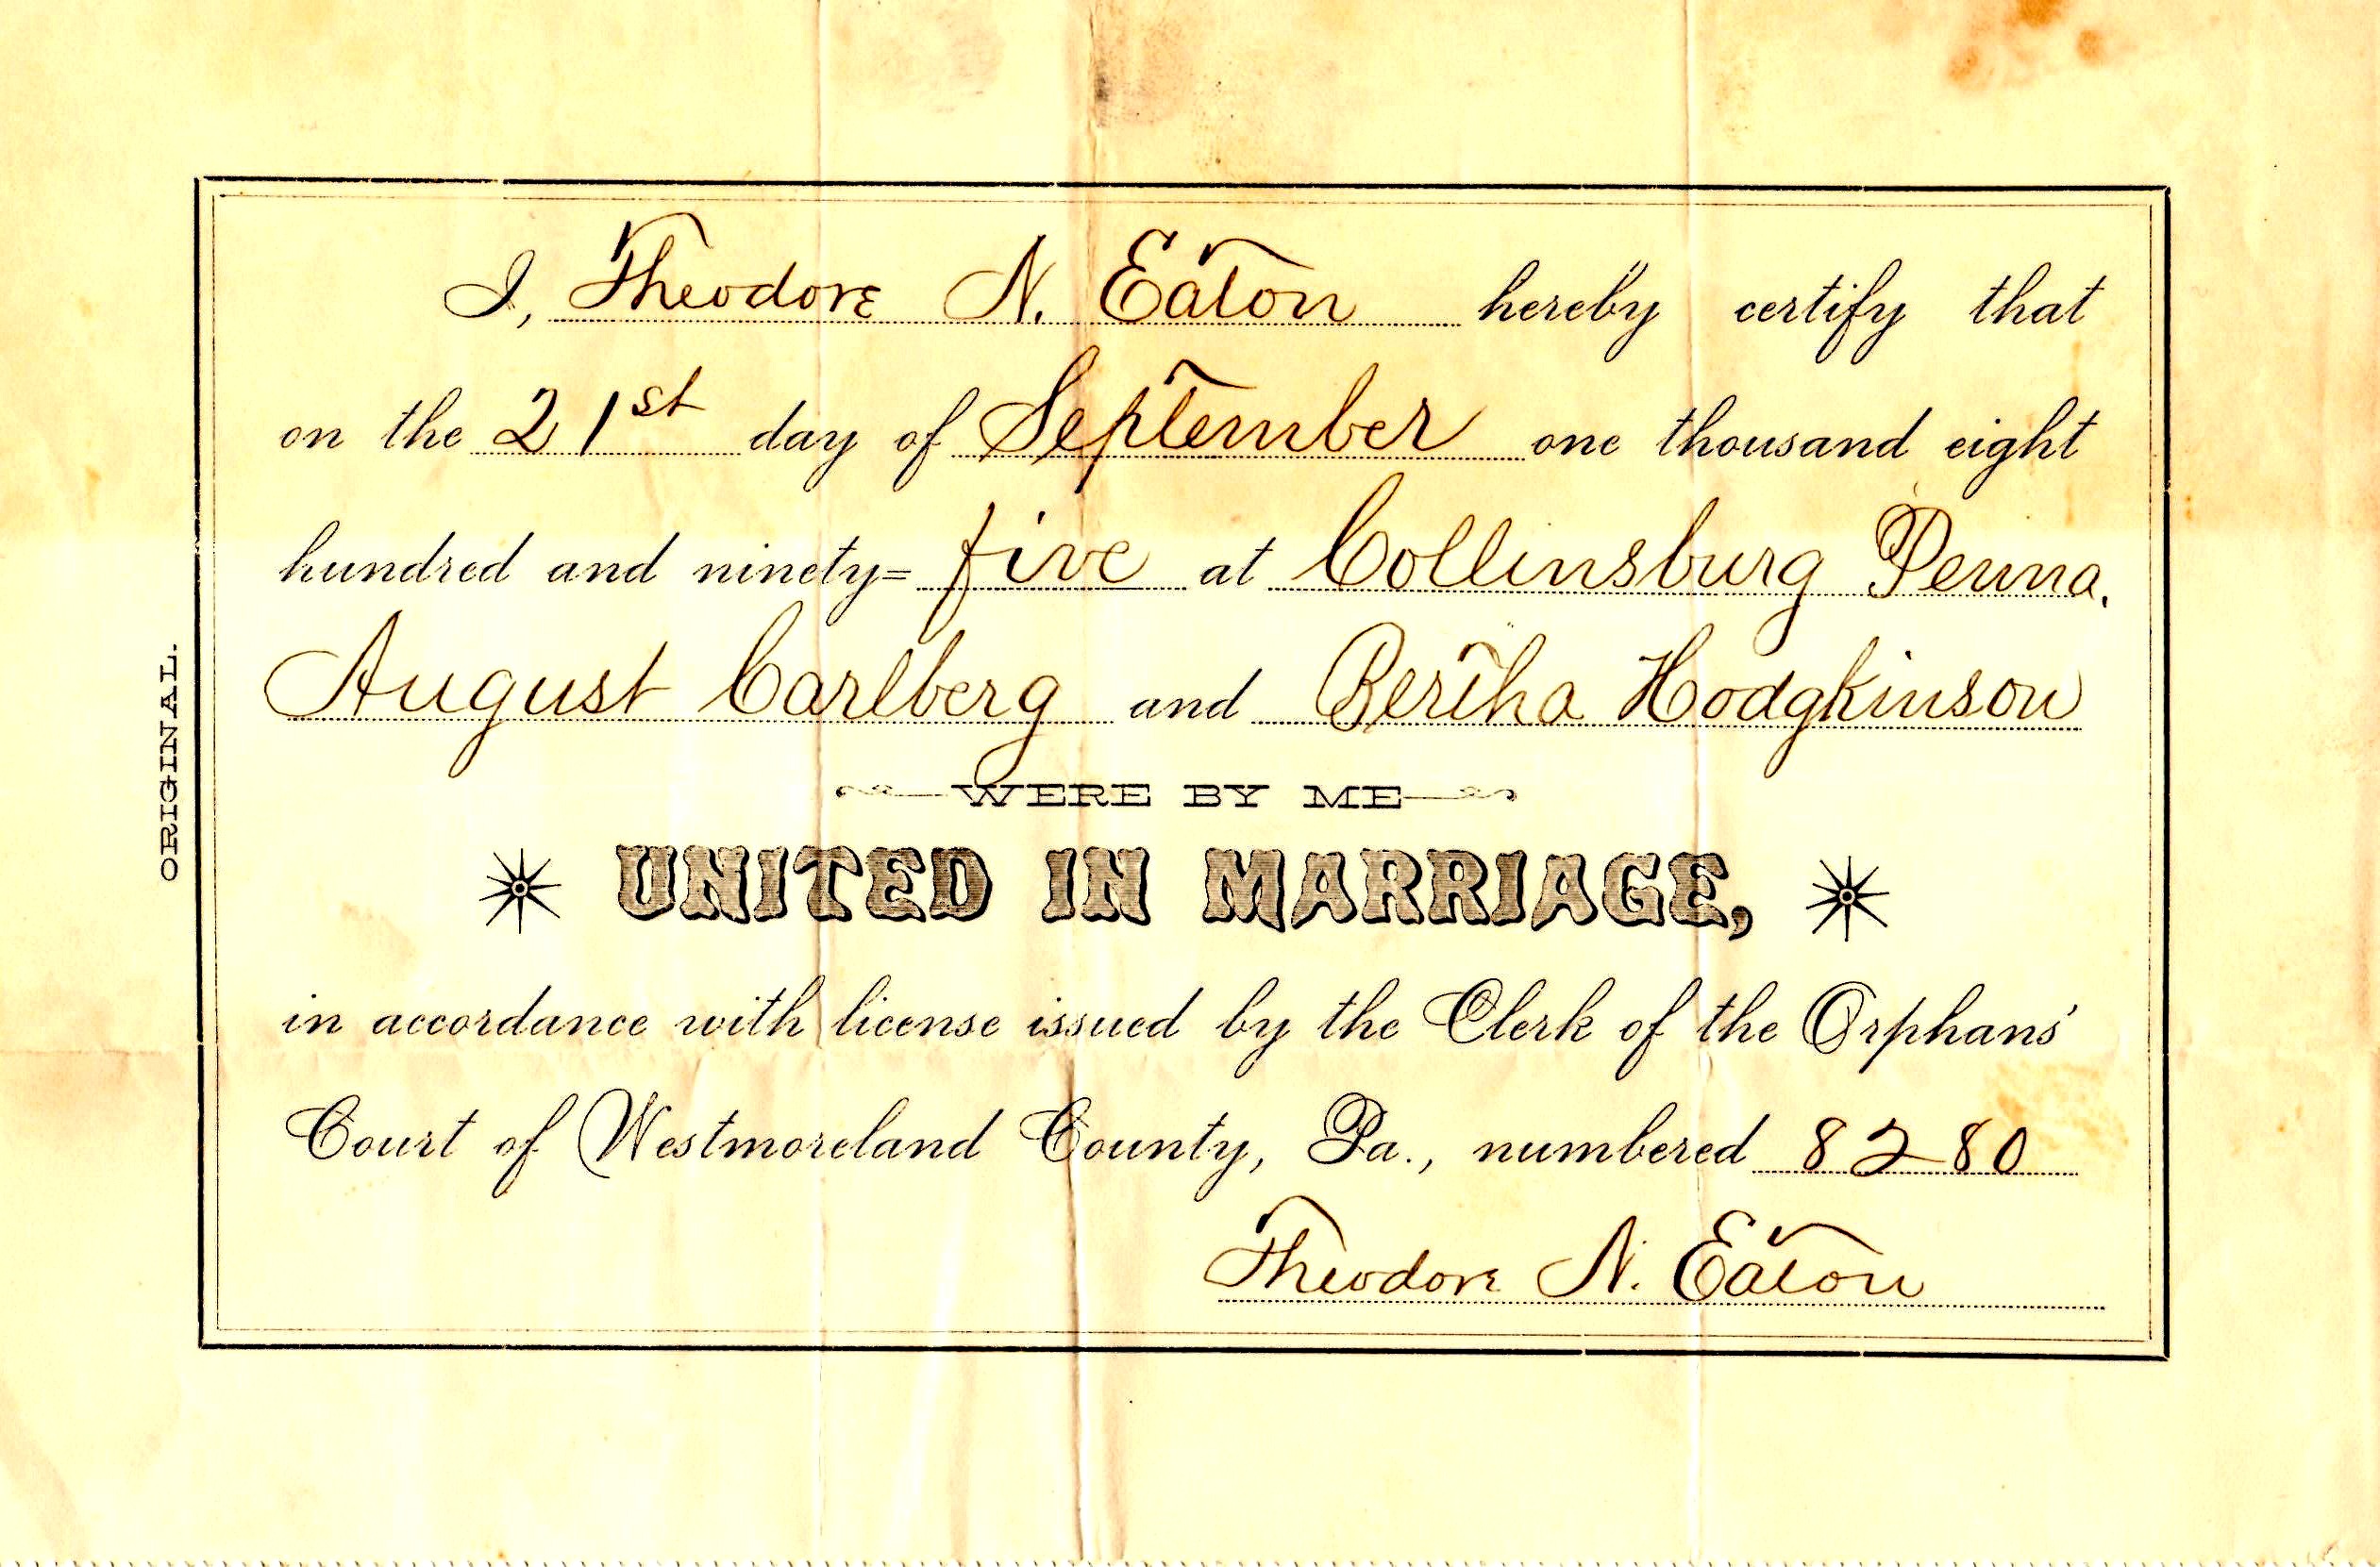 I, Theodore N. Eaton hereby certify that
on the 21st day of September one thousand eight
hundred and ninety= five at Collinsburg Penna.
August Carlberg and Bertha Hodgkinson
WERE BY ME
UNITED IN MARRIAGE,
in accordance with license issued by the Clerk of the Orphans'
Court of Westmoreland County, Pa., numbered 8280
Theodore N. Eaton
ORIGINAL.